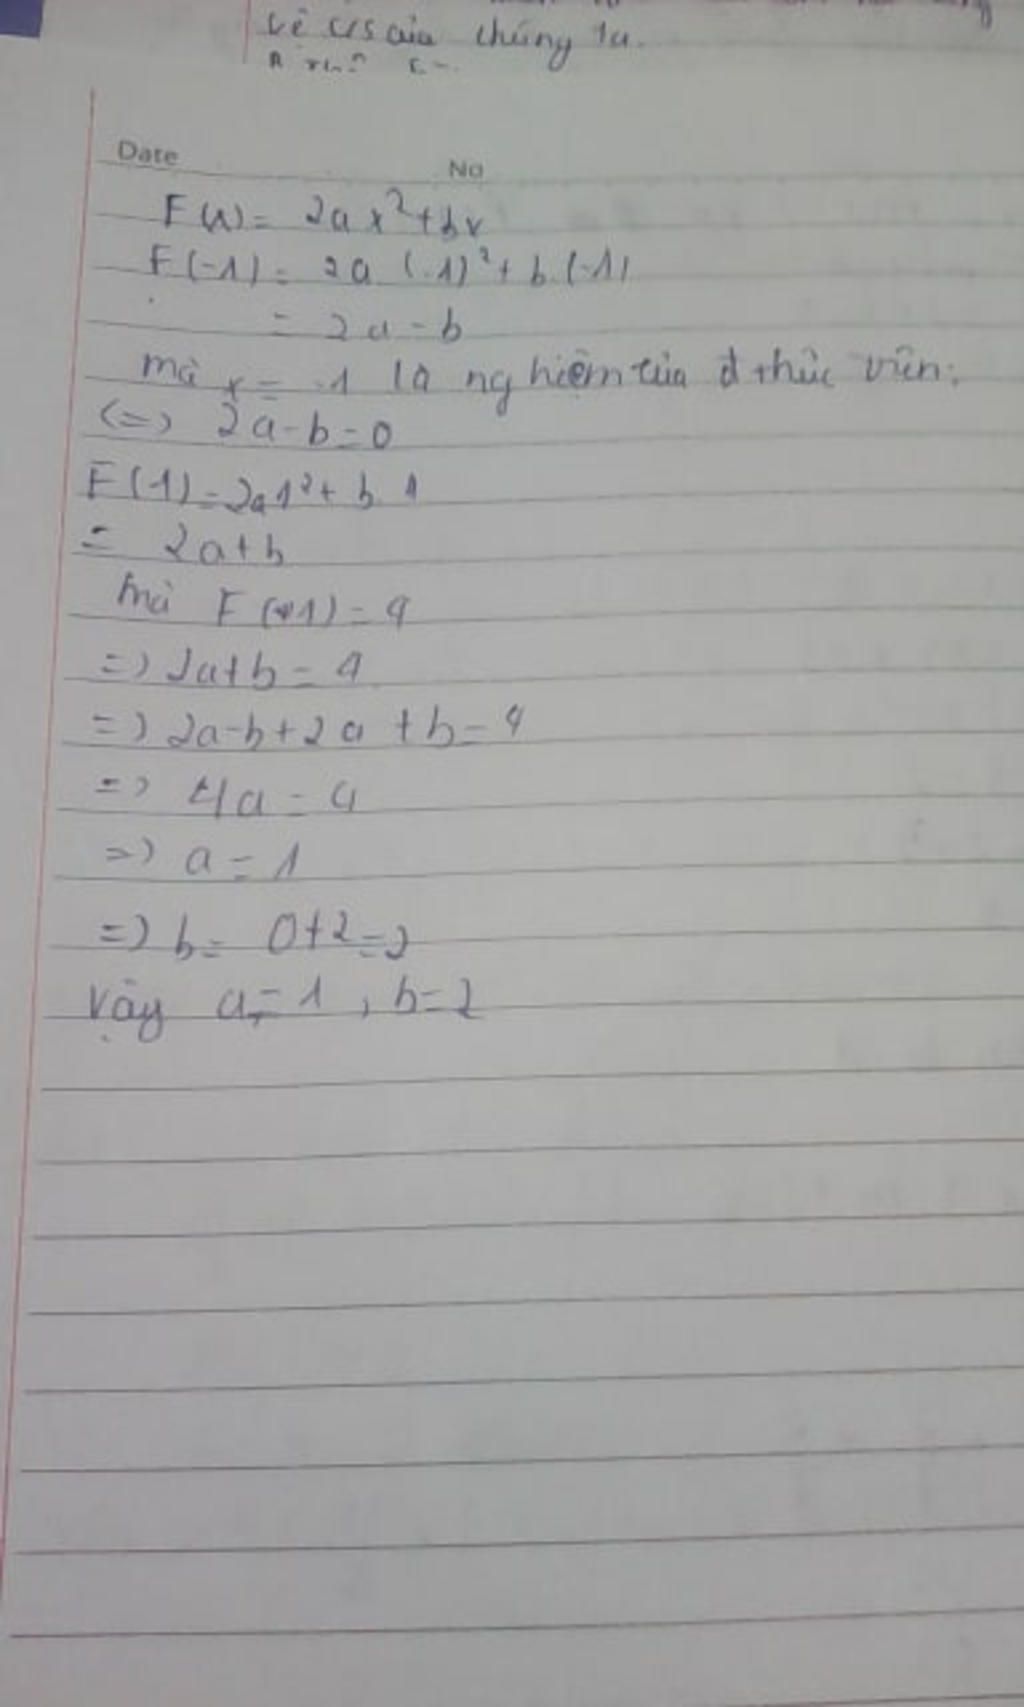 về c/s của chúng ta.
Date No
F(x) = 2ax²+bx
F(-1) = 2a (-1)²+ b.(-1)
= 2a-b
mà x = -1 là nghiệm của đ thức trên.
(=) 2a-b=0
F(1)=2a1²+ b.1
= 2a+b
mà F(1)=4
=) 2a+b = 4
=) 2a-b+2a+b=4
=) 4a = 4
=) a = 1
=) b = 0+2=2
Vậy a=1, b=2